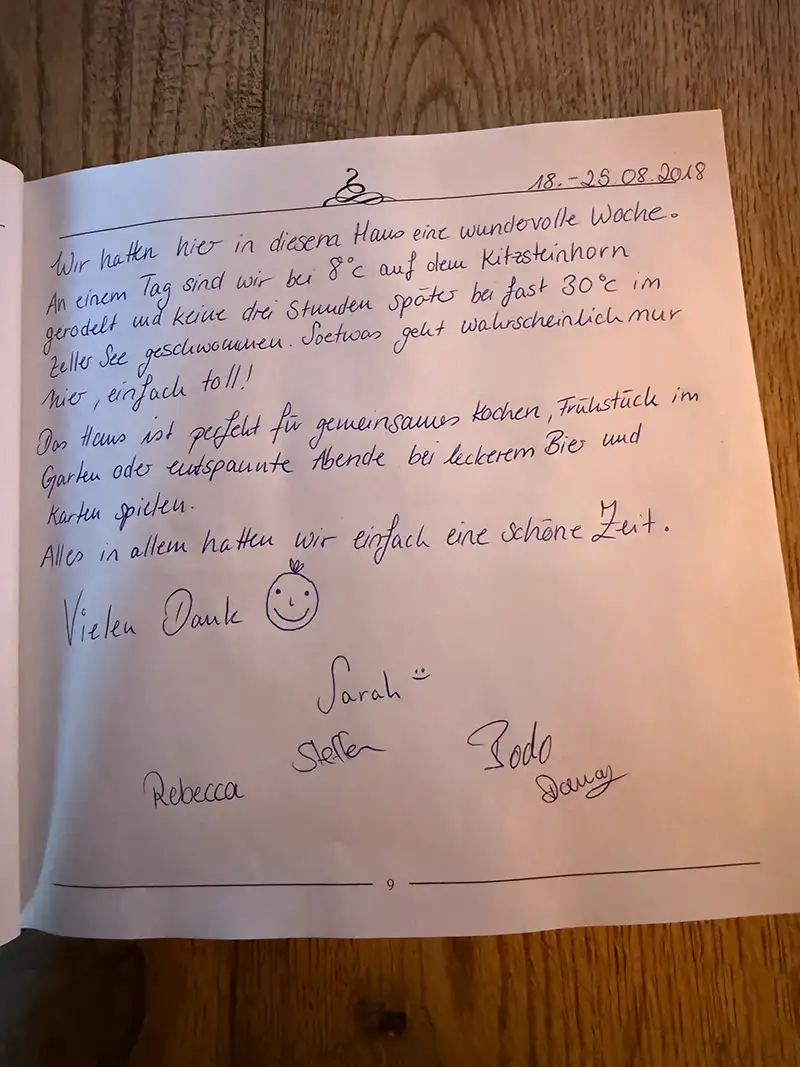 18.-25.08.2018
Wir hatten hier in diesem Haus eine wundervolle Woche.
An einem Tag sind wir bei 8°C auf dem Kitzsteinhorn
gerodelt und keine drei Stunden später bei fast 30°C im
Zeller See geschwommen. Soetwas geht wahrscheinlich nur
hier, einfach toll!
Das Haus ist perfekt für gemeinsames Kochen, Frühstück im
Garten oder entspannte Abende bei leckerem Bier und
Karten spielen.
Alles in allem hatten wir einfach eine schöne Zeit.
Vielen Dank
Sarah
Steffen
Bodo
Rebecca
9